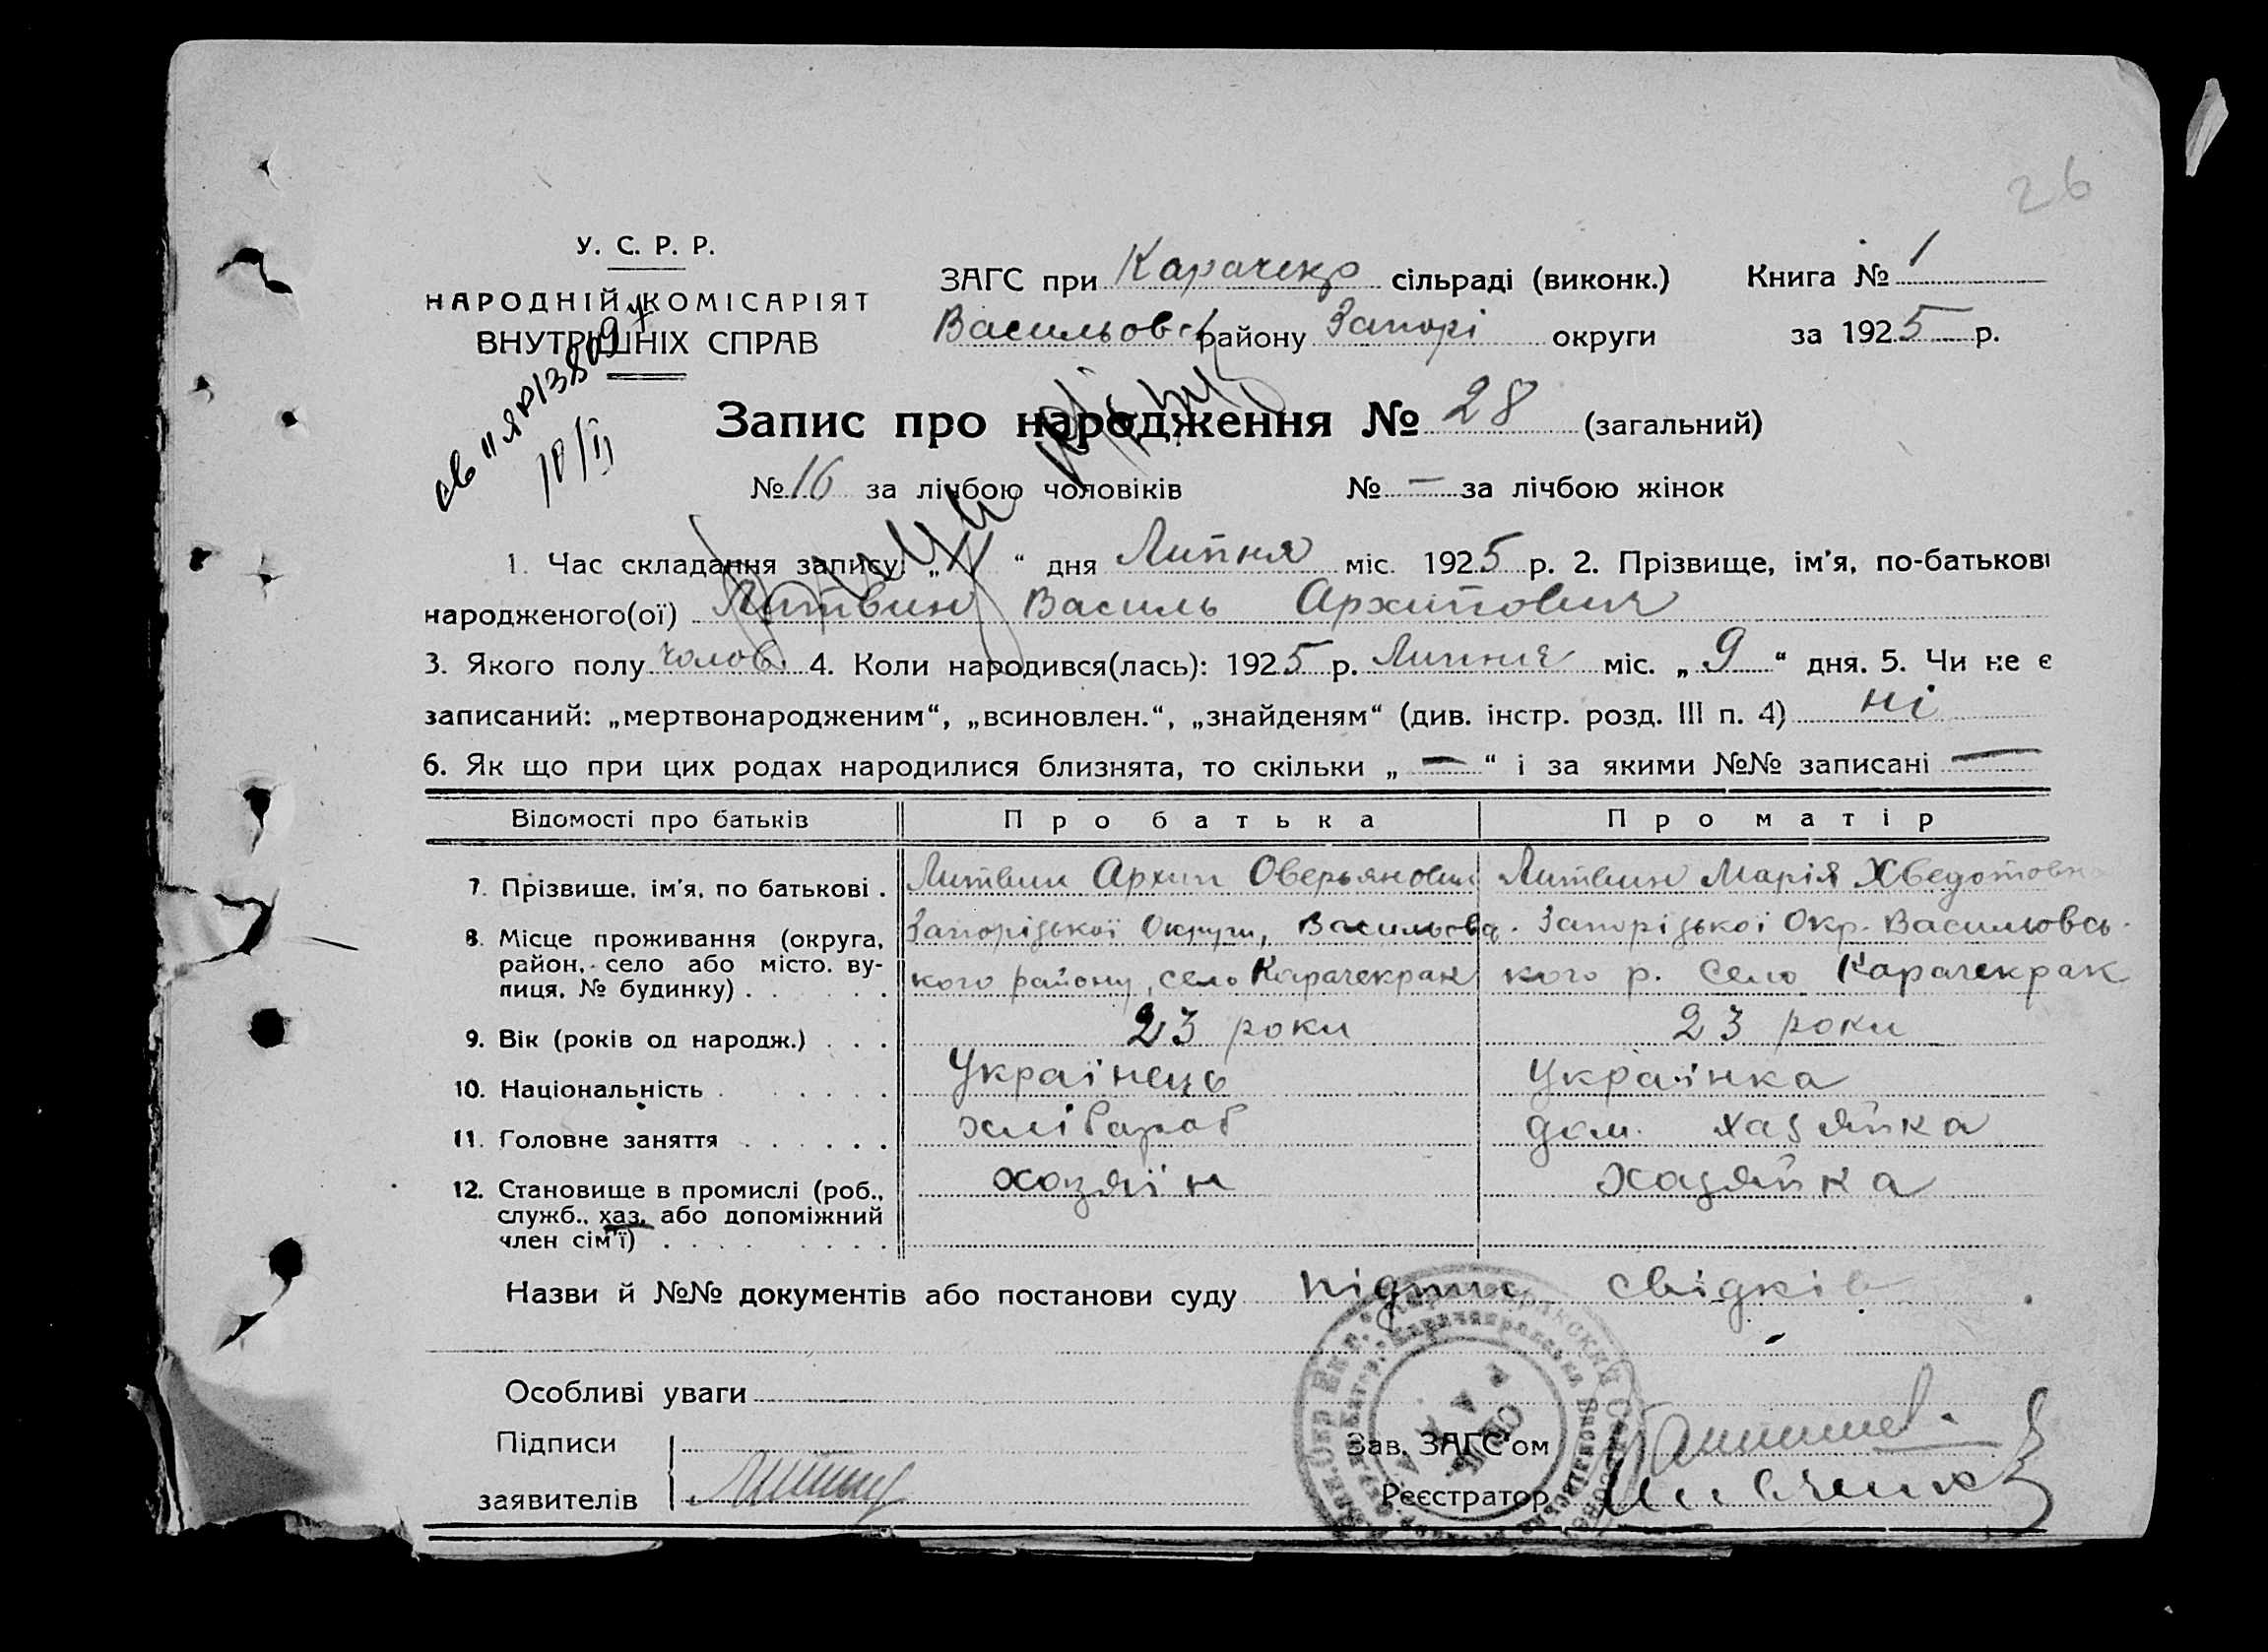 26
У. С. Р. Р.
НАРОДНІЙ КОМІСАРІЯТ
ВНУТРІШНІХ СПРАВ
ЗАГС при Карачекр сільраді (виконк.) Книга № 1
Васильовс району Запорі округи за 1925 р.
Запис про народження № 28 (загальний)
№ 16 за лічбою чоловіків № — за лічбою жінок
10/II
1. Час складання запису „ “ дня Липня міс. 1925 р. 2. Прізвище, ім'я, по-батькові
народженого(ої) Литвин Василь Архипович
3. Якого полу чолов. 4. Коли народився(лась): 1925 р. Липня міс. „ 9 “ дня. 5. Чи не є
записаний: „мертвонародженим“, „всиновлен.“, „знайденям“ (див. інстр. розд. III п. 4) ні
6. Як що при цих родах народилися близнята, то скільки „ — “ і за якими №№ записані —
Відомості про батьків Про батька Про матір
7. Прізвище, ім'я, по батькові . Литвин Архип Оверьянович Литвин Марія Хведотовна
8. Місце проживання (округа, Запоріцької Округи, Васильовс Запоріцької Окр. Васильовсь-
район, село або місто, ву- кого району, село Карачекрак кого р. Село Карачекрак
лиця, № будинку) . . . . .
9. Вік (років од народж.) . . . 23 роки 23 роки
10. Національність . . . . . . Українець Українка
11. Головне заняття . . . . . . хлібароб дом. хазяйка
12. Становище в промислі (роб., хозяїн хазяйка
служб., хаз. або допоміжний
член сім'ї) . . . . . . . .
Назви й №№ документів або постанови суду підпис свідків
Особливі уваги
Підписи Зав. ЗАГС'ом
заявителів Реєстратор